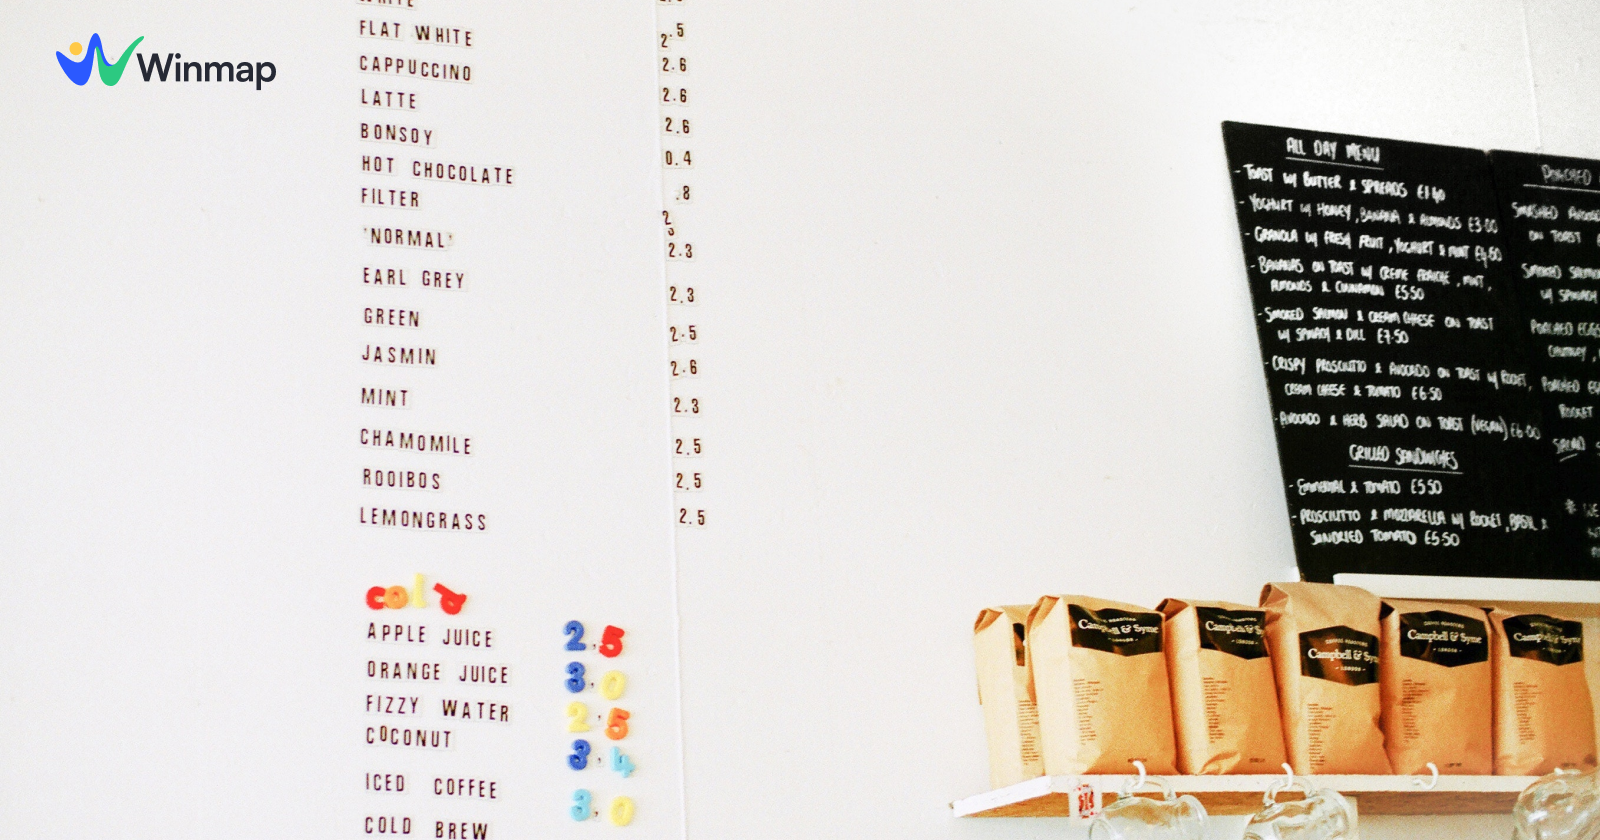 Winmap
FLAT WHITE 2.5
CAPPUCCINO 2.6
LATTE 2.6
BONSOY 2.6
HOT CHOCOLATE 0.4
FILTER .8
'NORMAL' 2.3
EARL GREY 2.3
GREEN 2.5
JASMIN 2.6
MINT 2.3
CHAMOMILE 2.5
ROOIBOS 2.5
LEMONGRASS 2.5
cold
APPLE JUICE 2.5
ORANGE JUICE 3.0
FIZZY WATER 2.5
COCONUT 3.4
ICED COFFEE 3.0
COLD BREW
ALL DAY MENU
- TOAST W/ BUTTER & SPREADS
- YOGHURT W/ HONEY, BANANA & ALMONDS £3.00
- GRANOLA W/ FRESH FRUIT, YOGHURT & MINT
- BANANAS ON TOAST W/ CREME FRAICHE, MINT,
ALMONDS & CINNAMON £5.50
- SMOKED SALMON & CREAM CHEESE ON TOAST
W/ SPINACH & DILL £7.50
- CRISPY PROSCIUTTO & AVOCADO ON TOAST W/ ROCKET,
CREAM CHEESE & TOMATO £6.50
- AVOCADO & HERB SALAD ON TOAST (VEGAN) £6.00
GRILLED SANDWICHES
- EMMENTAL & TOMATO £5.50
- PROSCIUTTO & MOZZARELLA W/ ROCKET, BASIL &
SUNDRIED TOMATO £5.50
POACHED
SMASHED
ON TOAST
SMOKED
W/ SPINACH
POACHED EGGS
CHUTNEY,
POACHED
ROCKET
SALAD
Campbell & Syme
LONDON
Campbell & Syme
Campbell & Syme
LONDON
Campbell & Syme
LONDON
Campbell & Syme